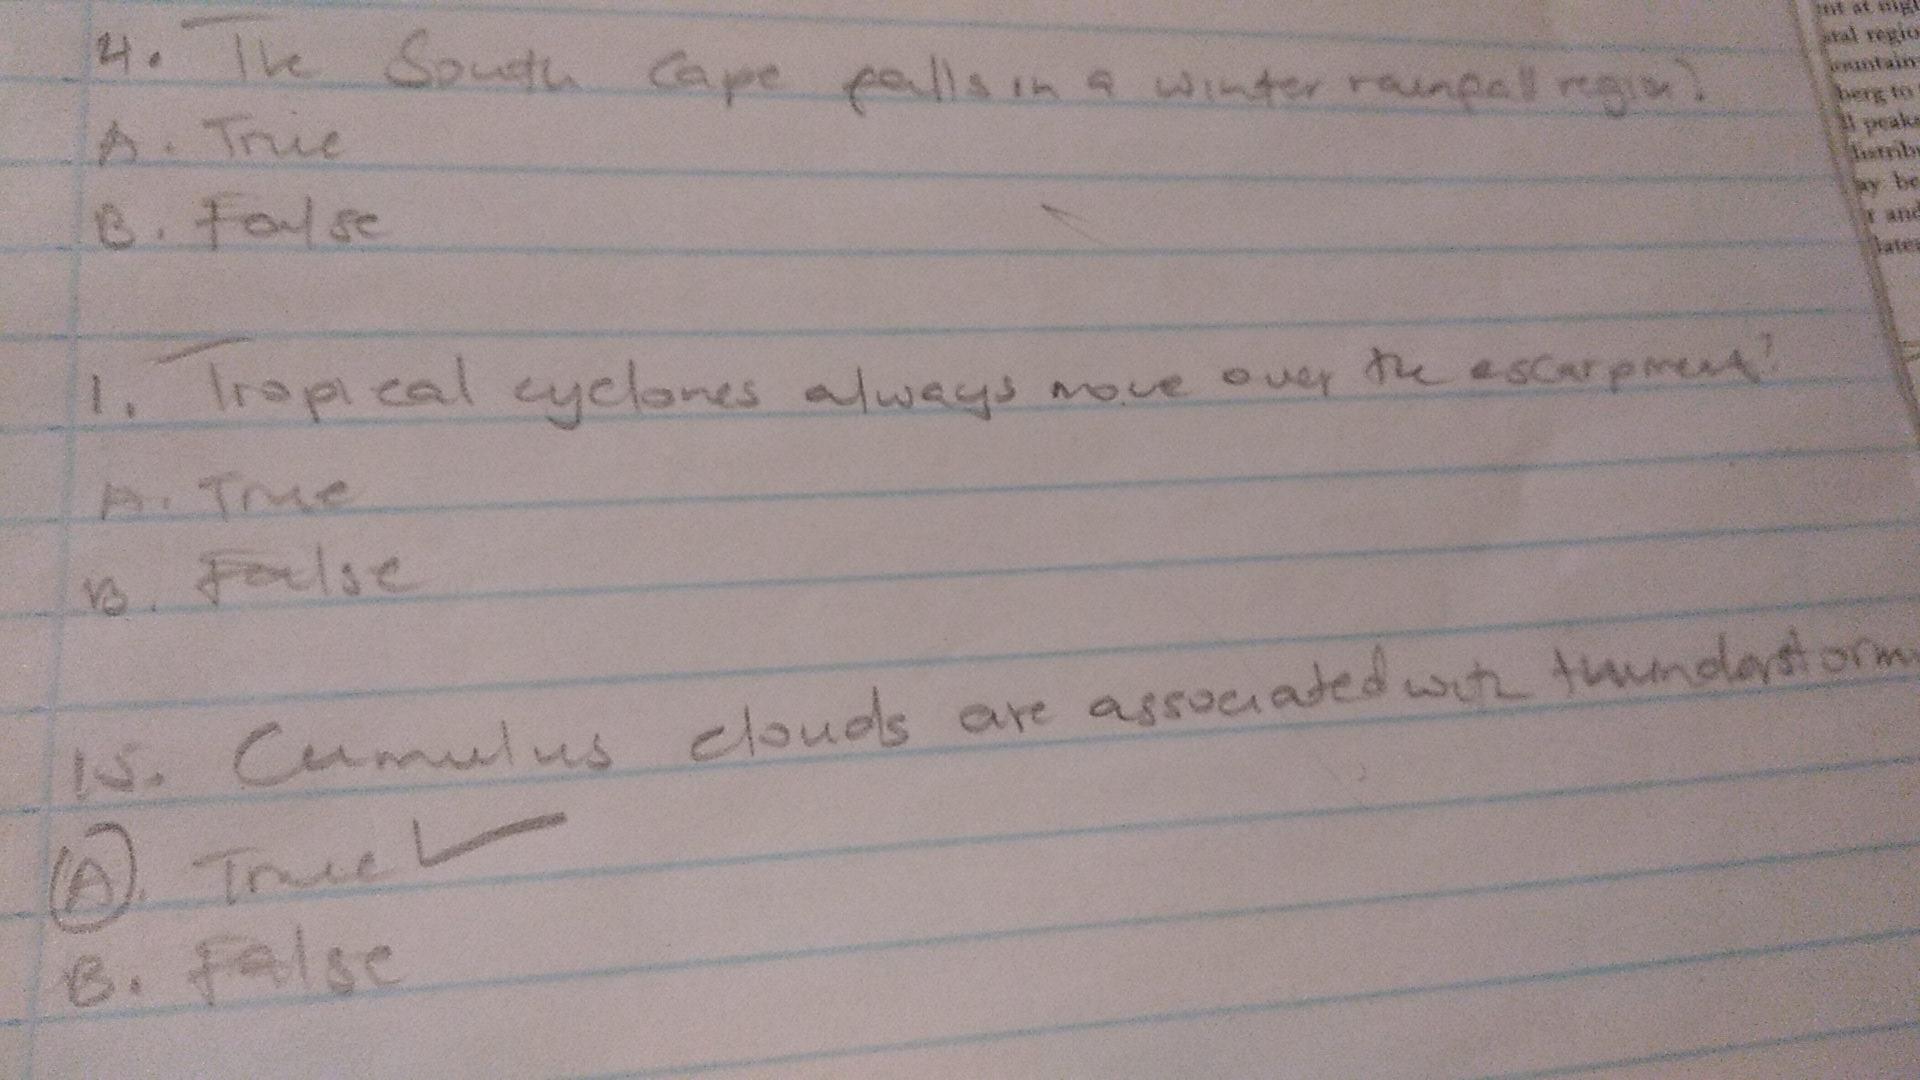 4. The South Cape falls in a winter rainfall region?
A. True
B. False
1. Tropical cyclones always move over the escarpment?
A. True
B. False
15. Cumulus clouds are associated with thunderstorm
(A). True ✓
B. False
at nig
regio
berg to
peaks
distribu
ay be
and